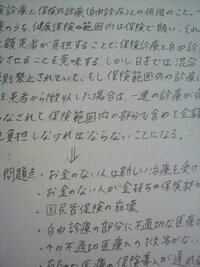 険診療と保険外診療(自由診療)との併用のこと。
療のうち、健康保険の範囲内は保険で賄い、それ
額患者が負担することで、保険診療と自由診
させることを意味する。しかし日本では混合
則禁止されていて、もし保険範囲外の診療に
を患者から徴収した場合は、一連の診療が自
なされて保険範囲内の部分も含めて全額
負担しなければならないことになる。
⇓
問題点・お金のない人は新しい治療を受け
・お金のない人が金持ちの保険部分
・国民皆保険の崩壊
・自由診療の部分に不適切な医療が
不適切医療への
医療の保険導入が遅れ